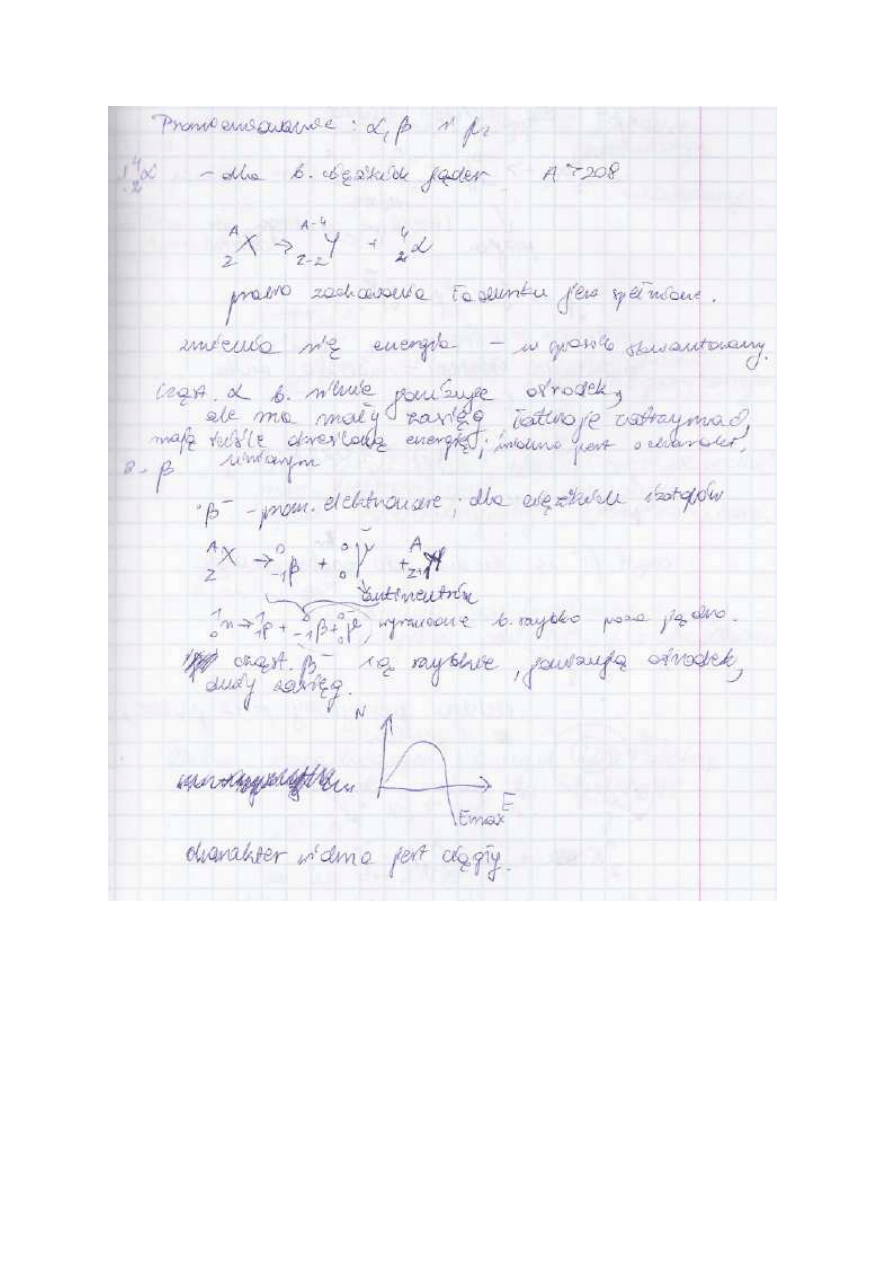 Promieniowanie : α, β i γ.
1. ⁴₂α - dla b. ciężkich jąder A > 208
ᴬ_Z X → ᴬ⁻⁴_Z₋₂ Y + ⁴₂α
prawo zachowania ładunku jest spełnione.
zmienia się energia - w sposób skwantowany.
cząst. α b. silnie jonizuje ośrodek,
ale ma mały zasięg łatwo je zatrzymać,
mają ściśle określoną energię; widmo jest o charakt.
liniowym
2. β
β⁻ - prom. elektronowe ; dla ciężkich izotopów
ᴬ_Z X → ⁰₋₁β + ⁰₀ν̄ + ᴬ_Z₊₁
antineutrino
¹₀n → ¹₁p + ⁰₋₁β + ⁰₀ν̄ wyrzucone b. szybko poza jądro.
cząst. β⁻ są szybkie, jonizują ośrodek,
duży zasięg.
N
E
Emax
charakter widma jest ciągły.